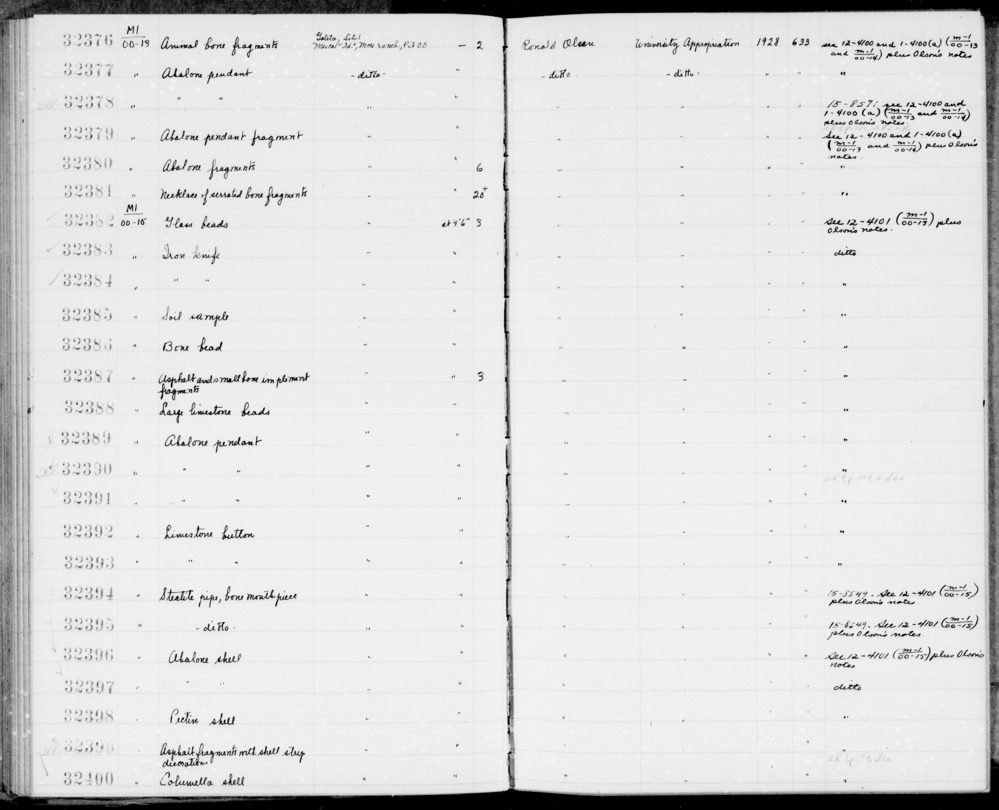 32376 M1/00-13 Animal bone fragments Goleta, Site 1 " - 2 Ronald Olson University Appropriation 1928 633 see 12-4100 and 1-4100(a) (m-1/00-13
More ranch, Pit 00 and m-1/00-14) plus Olson's notes
32377 " Abalone pendant - ditto - " - ditto - - ditto - " " "
32378 " " " " " " " " " 15-857; see 12-4100 and
1-4100 (a) (m-1/00-13 and m-1/00-14)
plus Olson's notes.
32379 " Abalone pendant fragment " " " " " See 12-4100 and 1-4100(a)
(m-1/00-13 and m-1/00-14) plus Olson's
notes.
32380 " Abalone fragments " " 6 " " " " "
32381 " Necklace of serrated bone fragments " " 20+ " " " " "
32382 M1/00-15 Glass beads " at 4'6" 3 " " " " See 12-4101 (m-1/00-15) plus
Olson's notes.
32383 " Iron knife " " " " " " ditto
32384 " " " " " " " " " "
32385 " Soil sample " " " " " " "
32386 " Bone bead " " " " " " "
32387 " Asphalt and small bone implement " " 3 " " " " "
fragments
32388 " Large limestone beads " " " " " " "
32389 " Abalone pendant " " " " " " "
32390 " " " " " " " " " "
32391 " " " " " " " " " "
32392 " Limestone button " " " " " " "
32393 " " " " " " " " " "
32394 " Steatite pipe, bone mouthpiece " " " " " " 15-8549. See 12-4101 (m-1/00-15)
plus Olson's notes
32395 " - ditto - " " " " " " 15-8549. See 12-4101 (m-1/00-15)
plus Olson's notes.
32396 " Abalone shell " " " " " " See 12-4101 (m-1/00-15) plus Olson's
notes
32397 " " " " " " " " " ditto
32398 " Pectin shell " " " " " " "
32399 " Asphalt fragments with shell strip " " " " " " "
decorations
32400 " Columella shell " " " " " " "